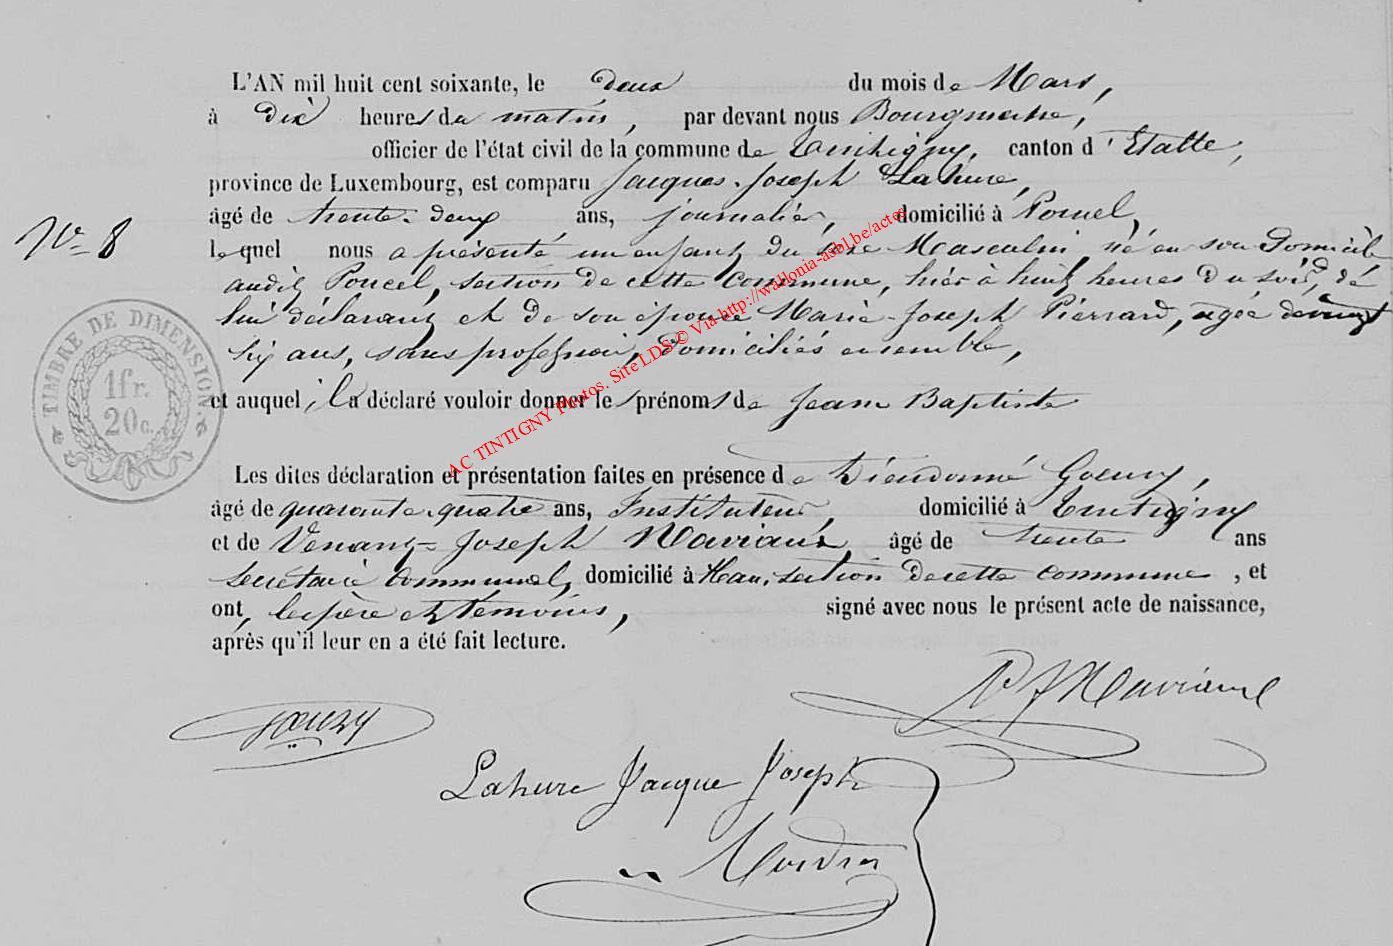 L'AN mil huit cent soixante, le deux du mois de Mars,
à dix heures du matin, par devant nous Bourgmestre,
officier de l'état civil de la commune de Tintigny, canton d'Etalle,
province de Luxembourg, est comparu Jacques-Joseph Lahure,
âgé de trente-deux ans, journalier, domicilié à Poncel,
Nº 8
lequel nous a présenté un enfant du sexe Masculin, né en son Domicile
audit Poncel, section de cette commune, hier à huit heures du soir, de
lui déclarant et de son épouse Marie-Joseph Pierrard, agée de vingt
six ans, sans profession, domiciliés ensemble,
et auquel il a déclaré vouloir donner les prénoms de Jean Baptiste
TIMBRE DE DIMENSION.
1fr.
20c.
Les dites déclaration et présentation faites en présence de Dieudonné Goeury,
âgé de quarante-quatre ans, Instituteur, domicilié à Tintigny
et de Venant-Joseph Naviaux, âgé de trente ans
secrétaire communal, domicilié à Han, section de cette commune, et
ont, les père et témoins, signé avec nous le présent acte de naissance,
après qu'il leur en a été fait lecture.
AC TINTIGNY Photos. Site LDS © Via http://wallonia-asbl.be/actes
VJNaviaux
Goeury
Lahure Jacque Joseph